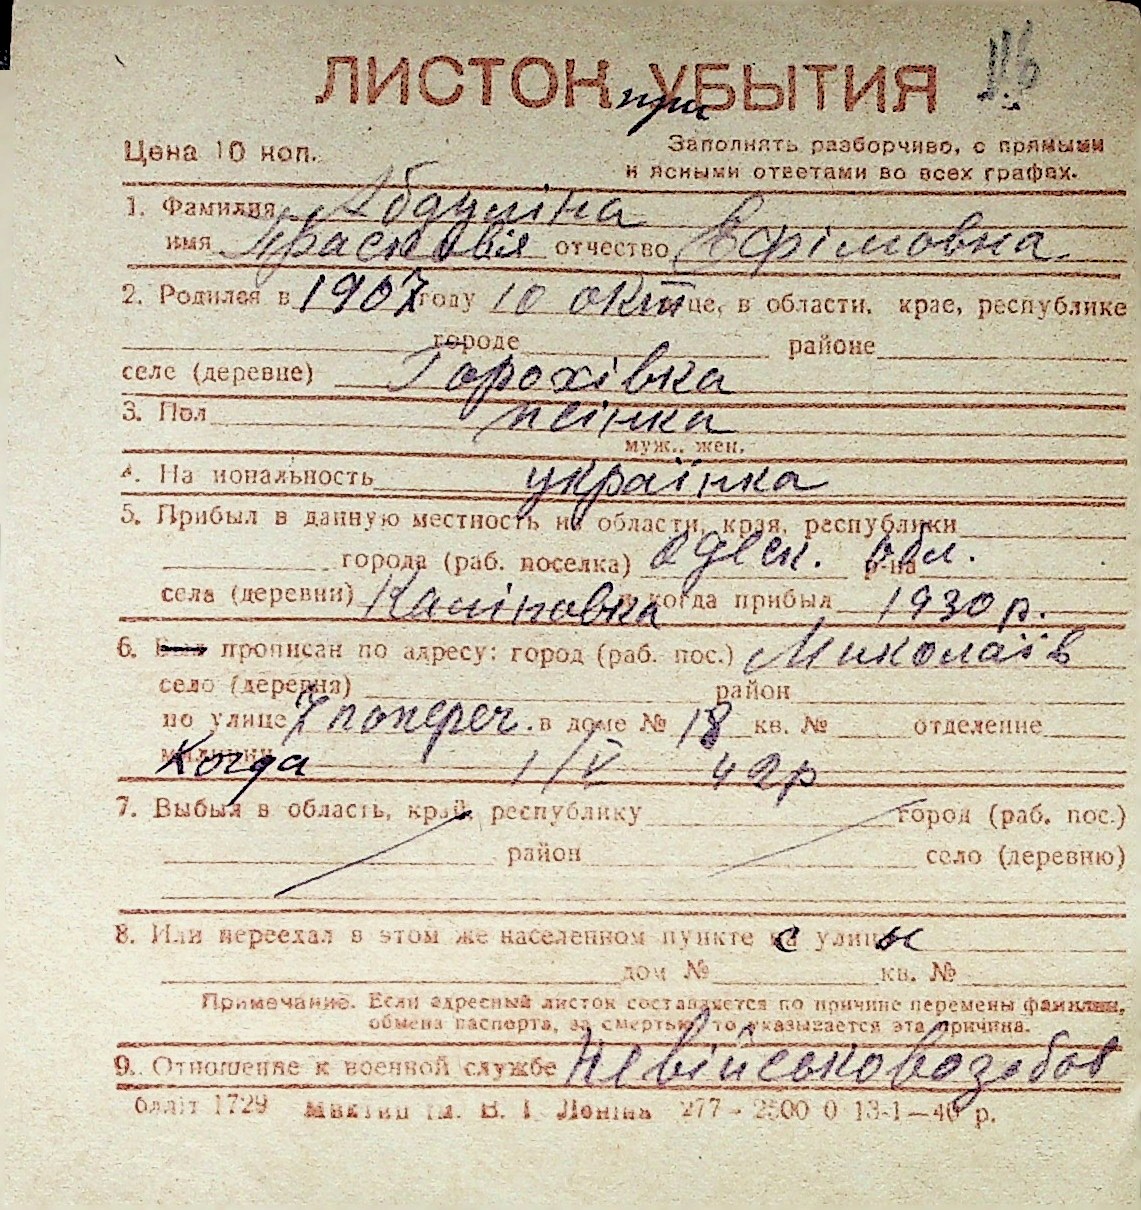 ЛИСТОК при УБЫТИЯ
Цена 10 коп.
Заполнять разборчиво, с прямыми
и ясными ответами во всех графах.
1. Фамилия Абдуліна
имя Прасковія отчество Ефімовна
2. Родился в 1907 году 10 окт це, в области, крае, республике
городе районе
селе (деревне) Горохівка
3. Пол жінка
муж., жен.
4. Национальность українка
5. Прибыл в данную местность из области, края, республики
города (раб. поселка) Одеск. обл. р-на
села (деревни) Каліновка и когда прибыл 1930 р.
6. Был прописан по адресу: город (раб. пос.) Миколаїв
село (деревня) район
по улице 7 попереч. в доме № 18 кв. № отделение
милиции Когда 1/V 42 р
7. Выбыл в область, край, республику город (раб. пос.)
район село (деревню)
8. Или переехал в этом же населенном пункте с улицы
дом № кв. №
Примечание. Если адресный листок составляется по причине перемены фамилии,
обмена паспорта, за смертью, то указывается эта причина.
9. Отношение к военной службе Невійськовозобов
блліт 1729 Миктип ім. В. І. Леніна 277 - 2500 0 13-1-40 р.